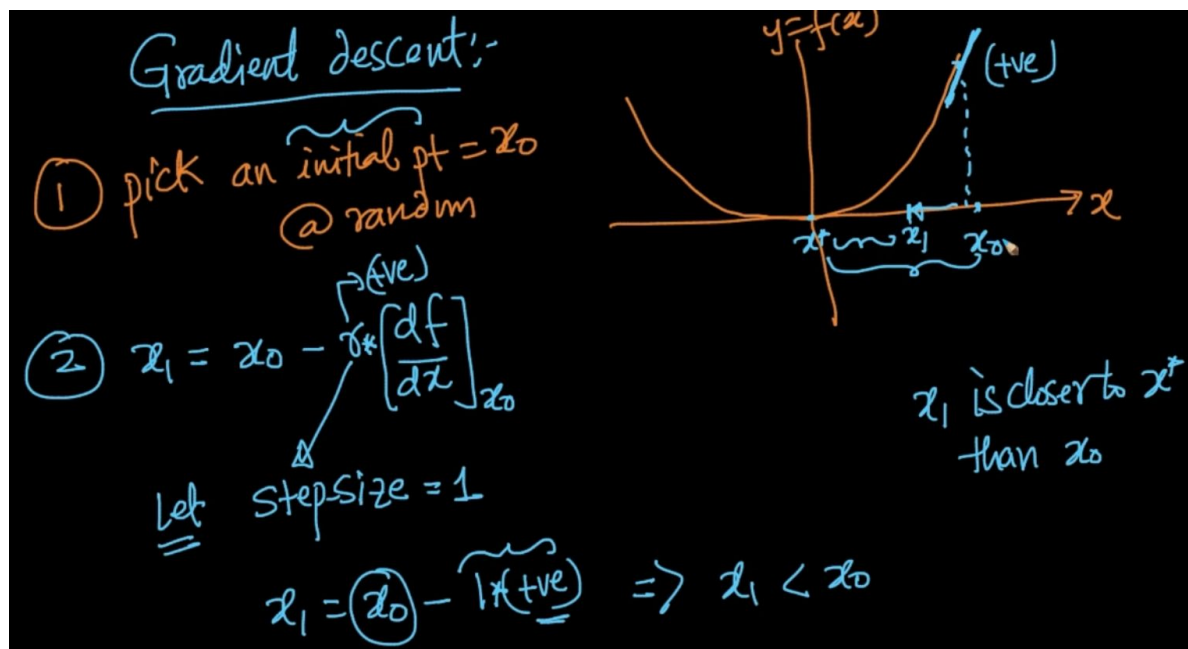 Gradient descent:-
① pick an initial pt = x₀
@ random
(+ve)
② x₁ = x₀ - r * [df/dx]x₀
Let stepsize = 1
x₁ = x₀ - 1*(+ve) => x₁ < x₀
y=f(x)
(+ve)
x
x* x₁ x₀
x₁ is closer to x*
than x₀